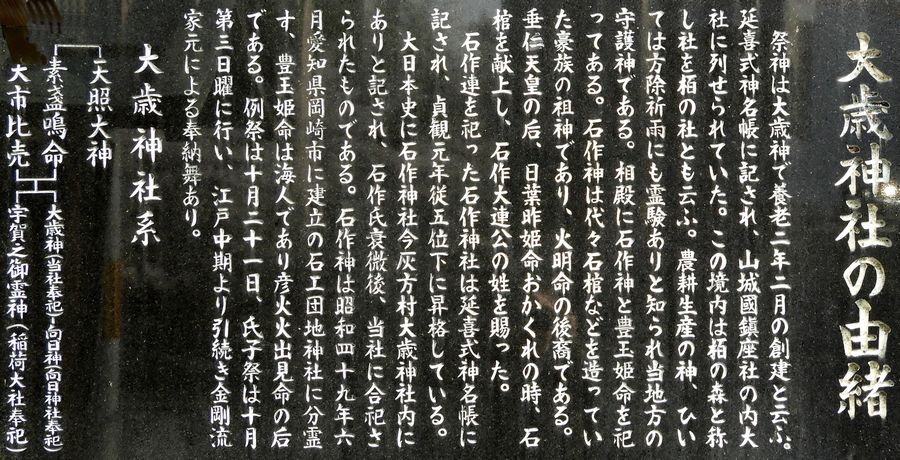 大歳神社の由緒
祭神は大歳神で養老二年二月の創建と云ふ。
延喜式神名帳に記され、山城國鎮座社の内大
社に列せられていた。この境内は栢の森と称
し社を栢の社とも云ふ。農耕生産の神、ひい
ては方除祈雨にも霊験ありと知られ当地方の
守護神である。相殿に石作神と豊玉姫命を祀
ってある。石作神は代々石棺などを造ってい
た豪族の祖神であり、火明命の後裔である。
垂仁天皇の后、日葉昨姫命おかくれの時、石
棺を献上し、石作大連公の姓を賜った。
石作連を祀った石作神社は延喜式神名帳に
記され、貞観元年従五位下に昇格している。
大日本史に石作神社今灰方村大歳神社内に
ありと記され、石作氏衰微後、当社に合祀さ
られたものである。石作神は昭和四十九年六
月愛知県岡崎市に建立の石工団地神社に分霊
す、豊玉姫命は海人であり彦火火出見命の后
である。例祭は十月二十一日、氏子祭は十月
第三日曜に行い、江戸中期より引続き金剛流
家元による奉納舞あり。
大歳神社系
天照大神
素盞鳴命
大市比売
大歳神(当社奉祀)
向日神(向日神社奉祀)
宇賀之御霊神(稲荷大社奉祀)